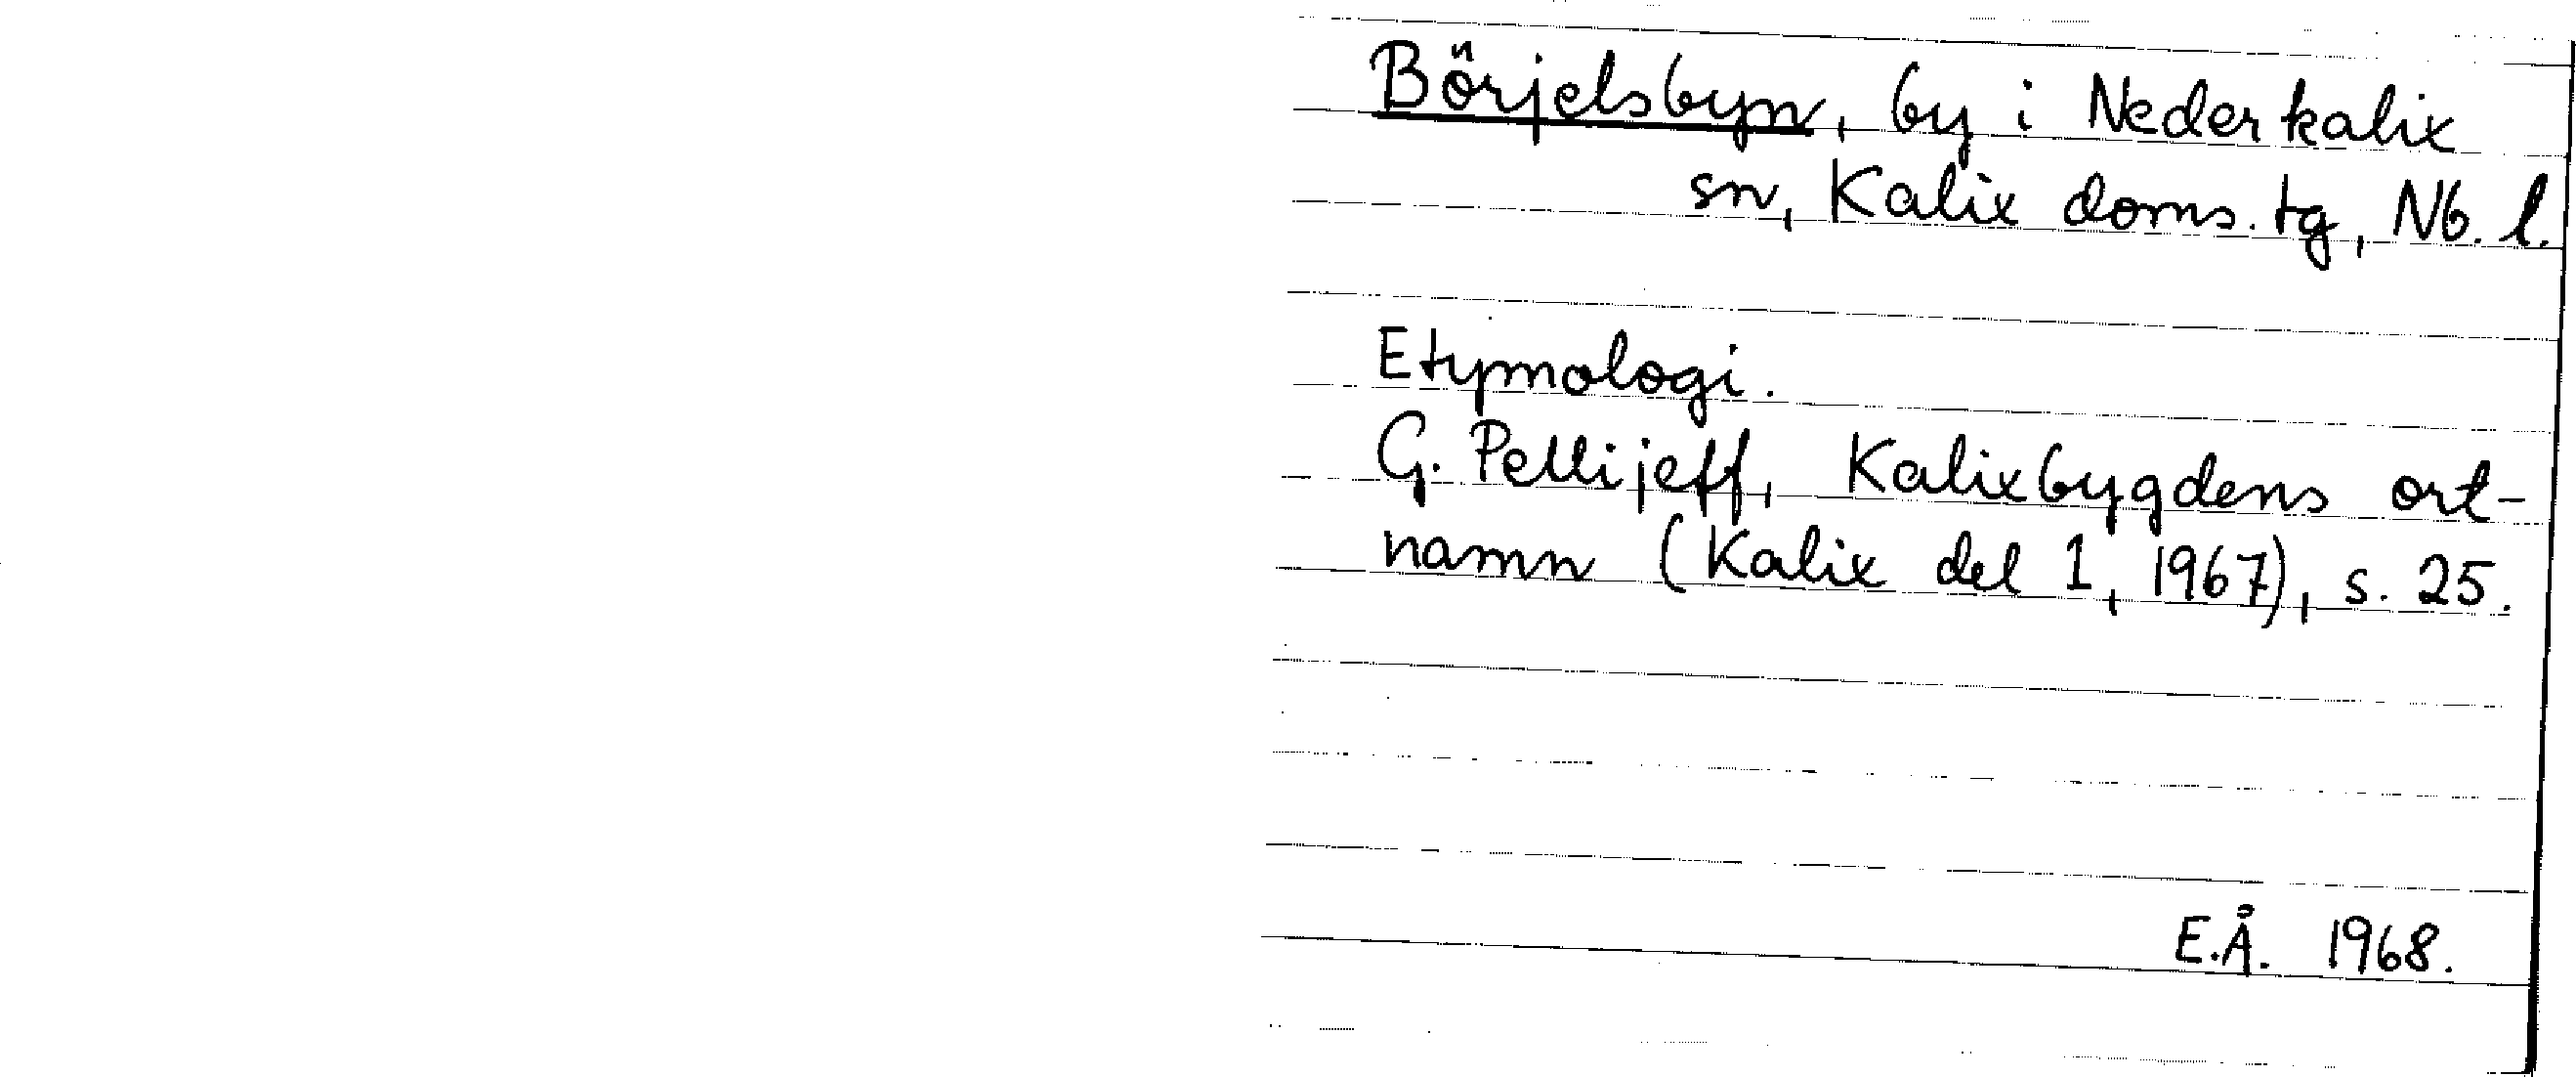 Börjelsbyn, by i Nederkalix
sn, Kalix doms. tg, Nb. l.
Etymologi.
G. Pellijeff, Kalixbygdens ort-
namn (Kalix del 1, 1967), s. 25.
E.Å. 1968.